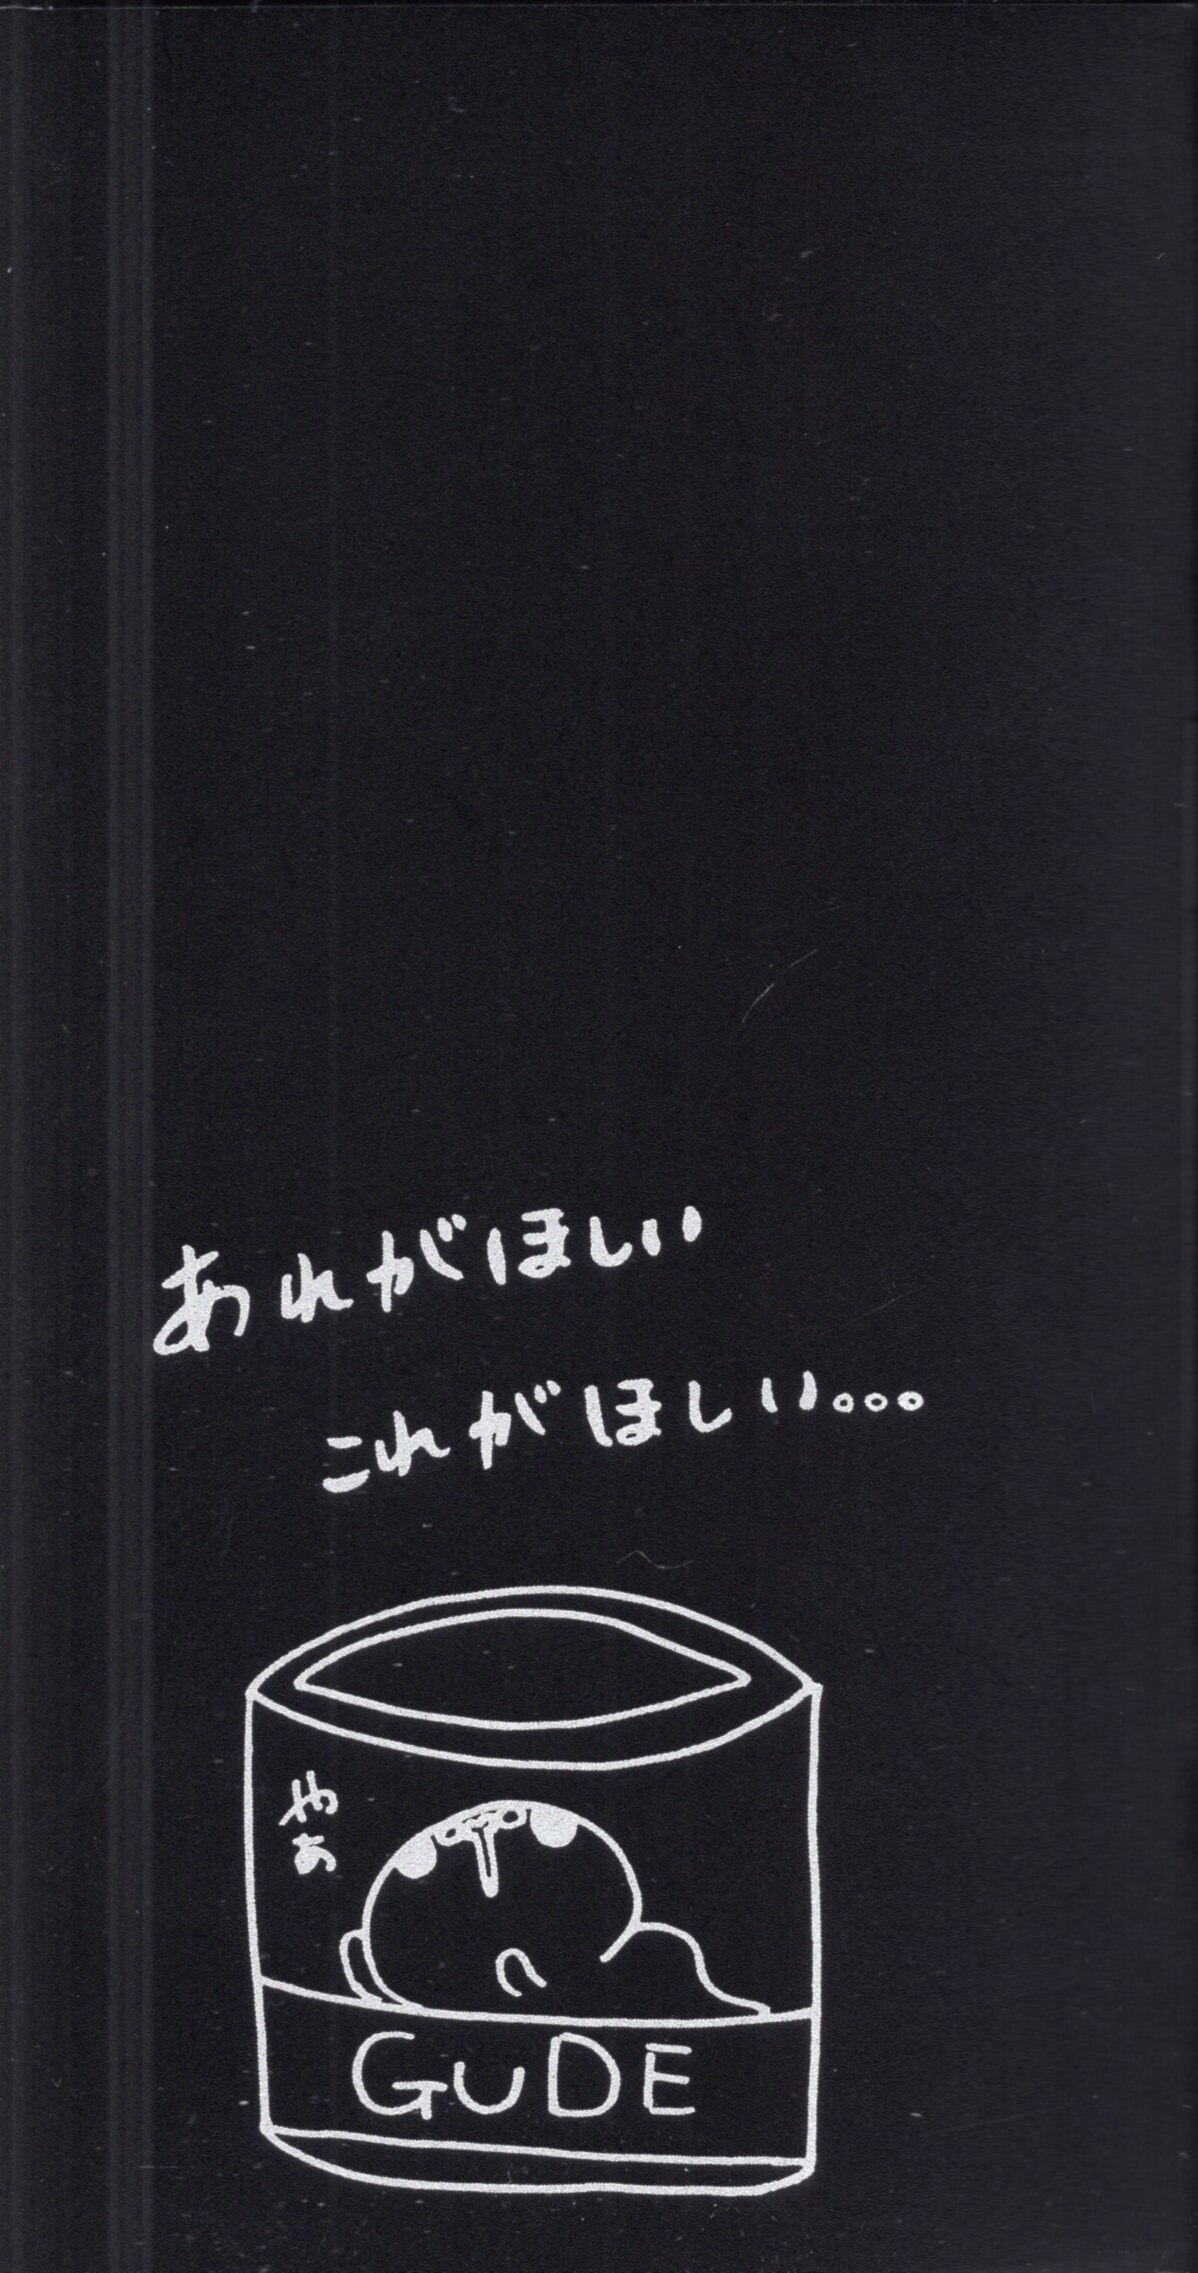 あれがほしい
これがほしい。。。
やぁ
GUDE